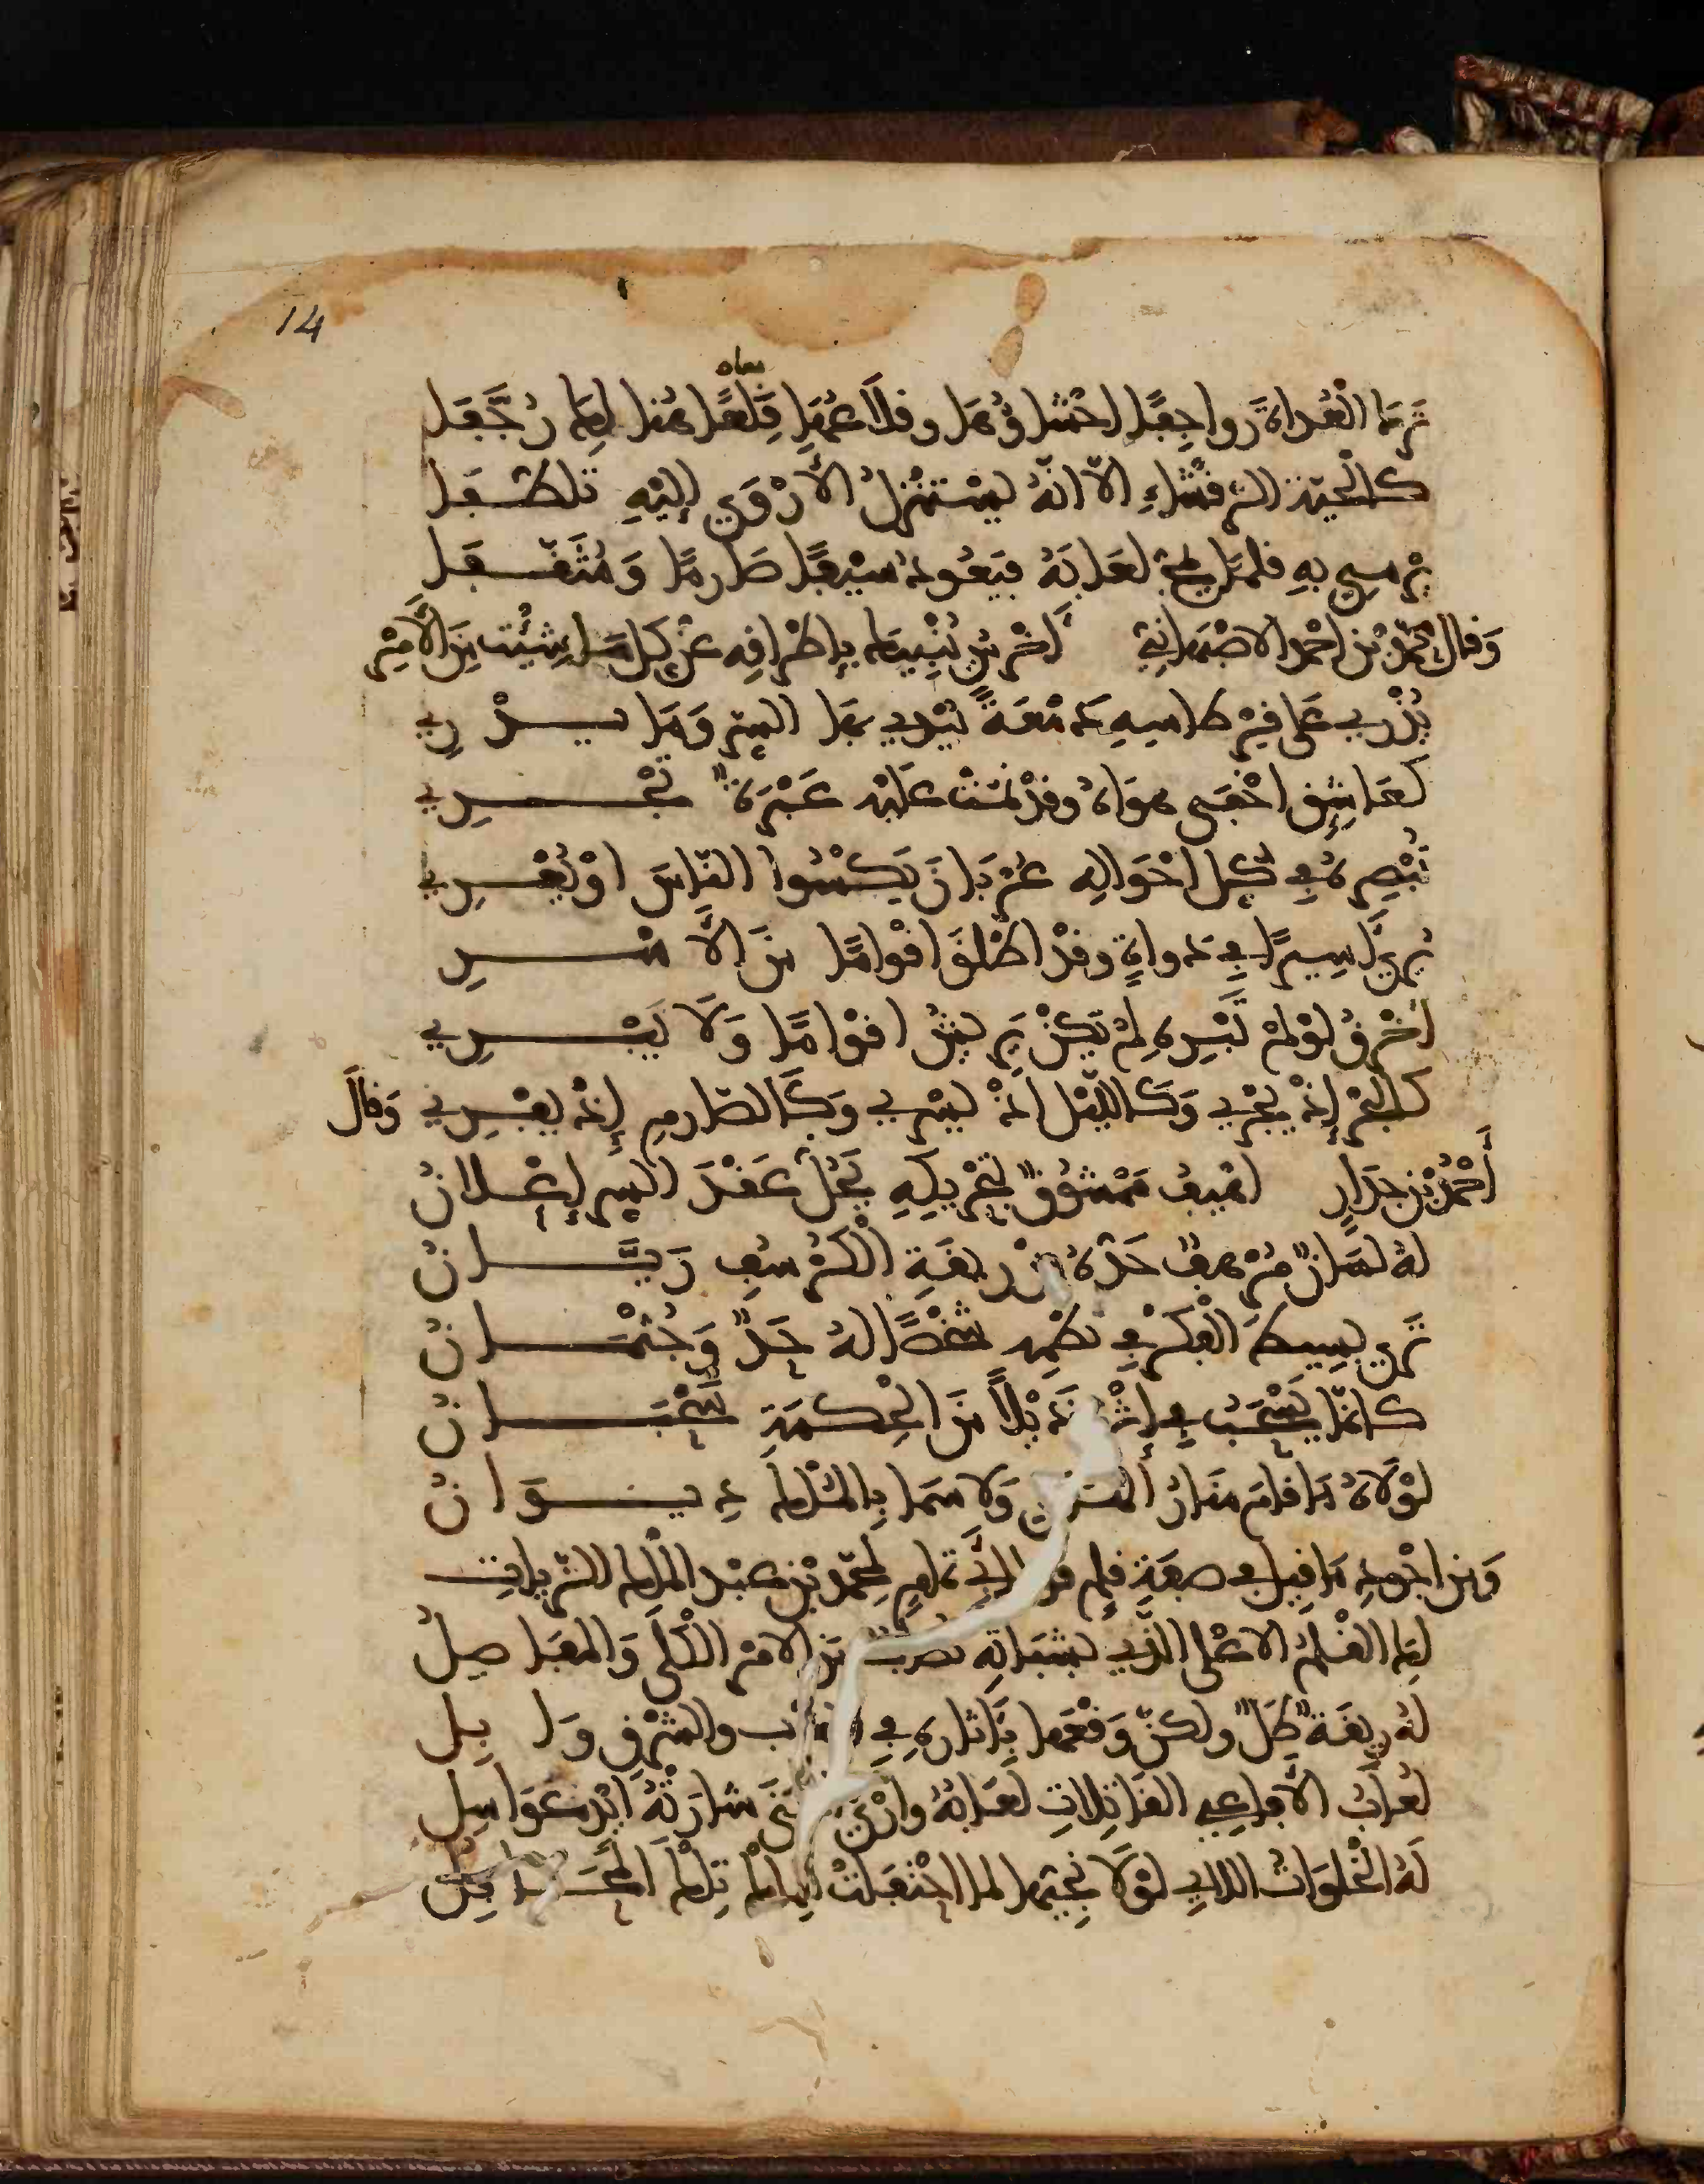 14
تَرِدُ العُداةَ رواجِعًا احشاؤُها وقلاعُها قِلَعًا هُنالِكَ رُجَّفا
معاه
كالحيّة الرقشاءِ الّا انّهُ يستنزلُ الأرْوَى اليْهِ تلطّفا
يرمي بهِ قلمًا يمُجّ لعابَهُ فيَعُودُ سيْفًا صَارمًا وَمُثَقَّفا
وَقال محمّدُ بْن احْمدَ الاصْبَهانيّ أخْرسُ يُنْبِيكَ بإطْراقِهِ عَنْ كلّ مَا شِئْتَ مِنَ الأمْرِ
يُذْرِي عَلى قِرْطاسِهِ دَمْعَةً يُبْدِي بهَا السِّرَّ وَمَا يدْرِي
كعَاشِقٍ اخْفَى هوَاهُ وقدْ نَمّتْ عليْهِ عَبْرَةٌ تجْرِي
تُبْصِرهُ في كلّ احْوَالِهِ عُرْيَانَ يَكْسُوا النّاسَ اوْ يُعْرِي
يُرَى أَسِيرًا في دَواةٍ وقدْ اطْلَقَ اقْوامًا مِنَ الأسْرِ
أخْرقُ لوْ لمْ تَبْرِهِ لمْ يَكُنْ يَرِيشُ اقوامًا وَلَا يَبْرِي
كالبحْرِ إذْ يجْرِي وَكَاللّيْلِ إذْ يسْرِي وَكَالصّارمِ إذْ يفْرِي وَقالَ
أحْمَدُ بْن جدَارٍ اهْيفُ ممْشُوقٌ بتحْرِيكِهِ يَحُلّ عَقْدَ السِّرِّ إعْلانُ
لهُ لسَانٌ مُرْهفٌ حَدّهُ مِنْ رِيقَةِ الكُرْسُفِ رَيّانُ
تَرى بسِيطَ الفِكْرِ في نظْمِهِ شخْصًا لهُ حَدٌّ وَجُثْمَانُ
كأنّما يَسْحَبُ في إثْرِهِ ذَيْلًا مِنَ الحِكْمَةِ سَحْبَانُ
لوْلَاهُ مَا قامَ مَنارُ الهدى وَلا سَمَا بالمُلْكِ دِيوَانُ
وَمن اجْودِ مَا قِيلَ في صِفَةِ قلمٍ قول أبي تمامٍ لمحمّد بْن عبْد الملك الزّيات
لكَ القَلمُ الاعْلى الذّي بِشَبَاتِهِ تصابُ مِنَ الامْرِ الكُلَى وَالمفَاصِلُ
لهُ رِيقَةٌ طَلٌّ ولكنّ وَقْعَها بِآثارِهِ فِي الغرب والشّرْقِ وَابِلُ
لُعابُ الأفاعِي القاتِلاتِ لعَابُهُ وارْيُ الجنى شارَتْهُ ايْدٍ عَوَاسِلُ
لهُ الخلَوَاتُ اللاءِ لوْلَا نجِيّها لما احْتفلتْ للملكِ تِلْكَ المحَافِلُ